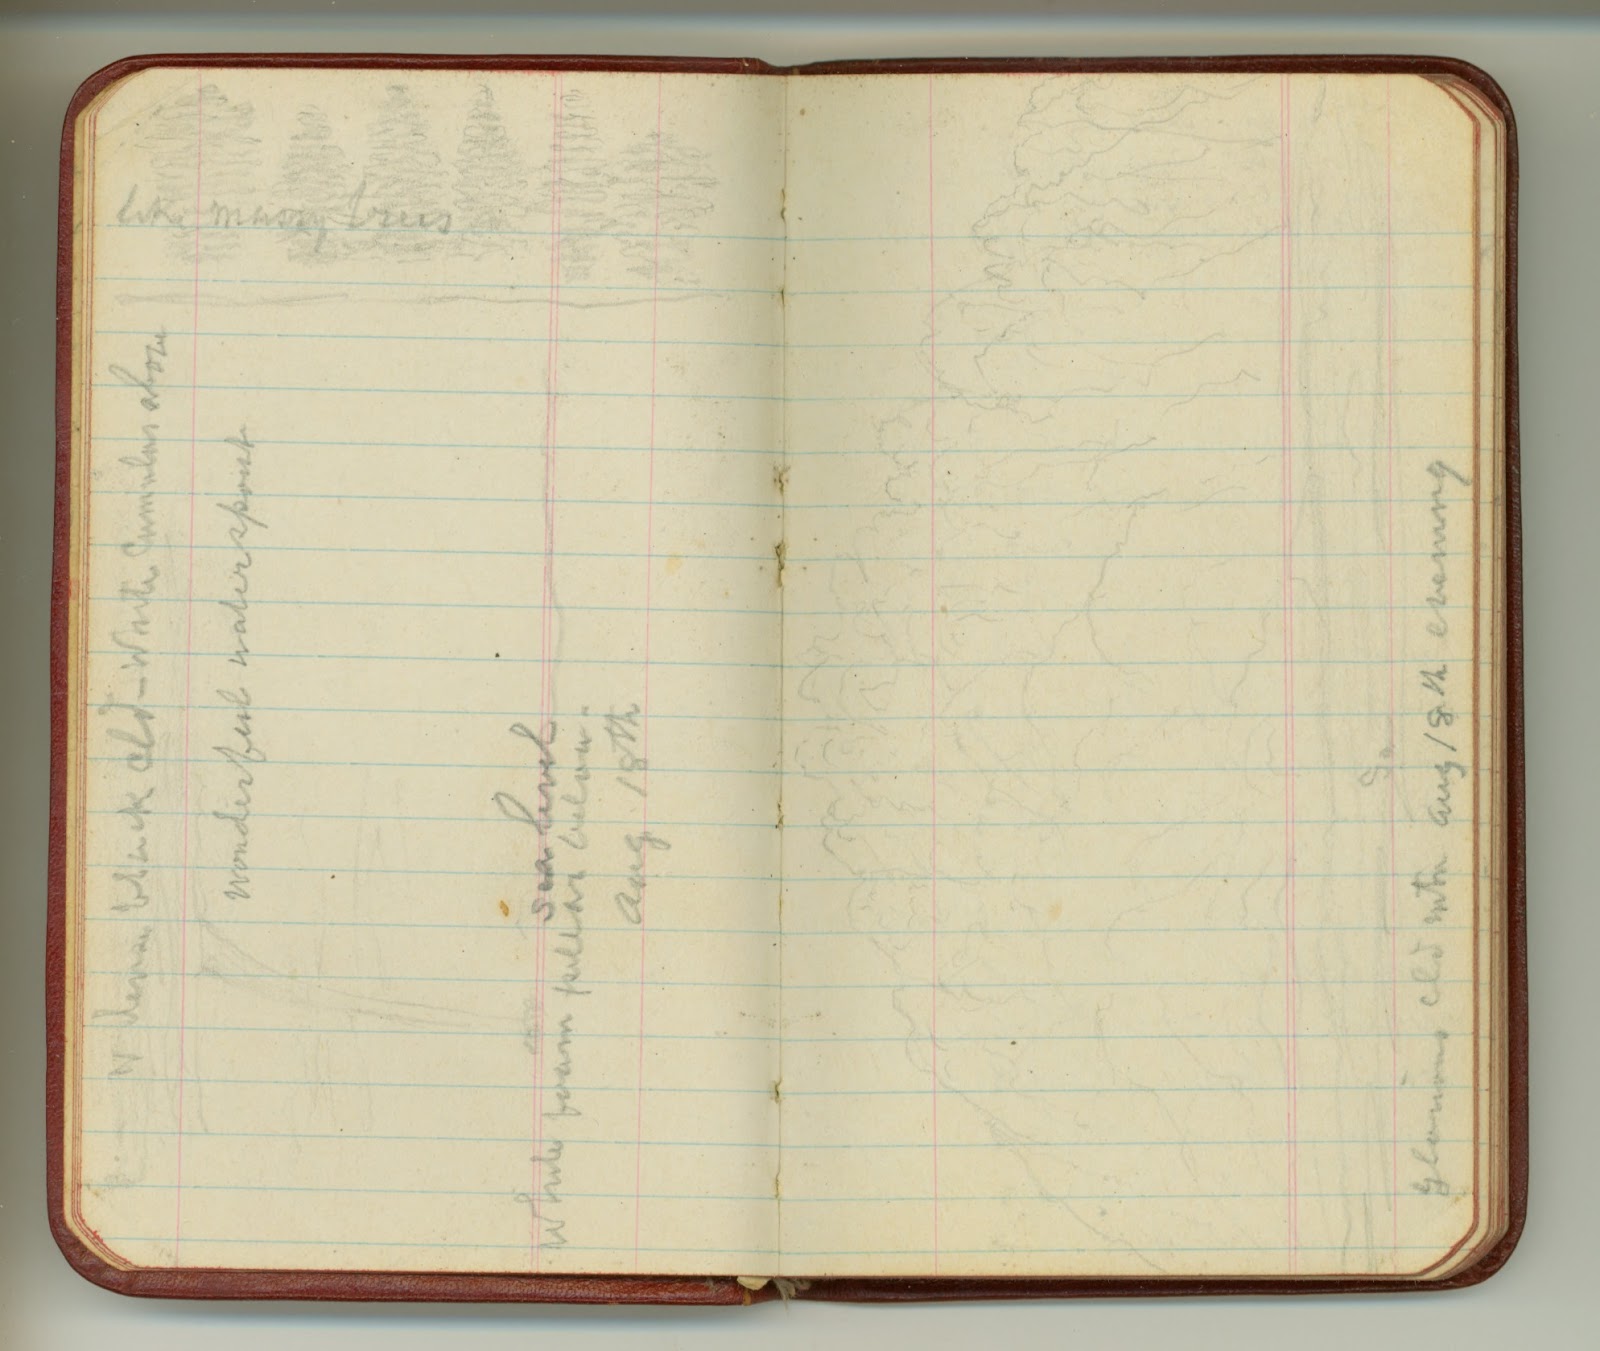 like mossy trees
dense black cld – With Cumulus above
wonderful waterspout
sea level
White foam pillar below.
Aug. 18th
Glorious cld mtn Aug 18th evening